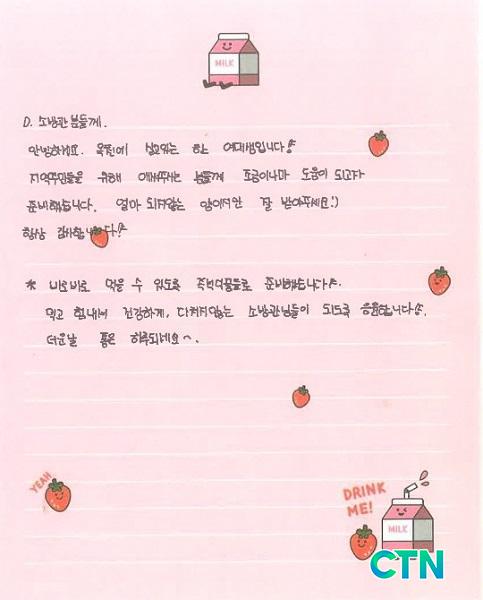 MILK
D. 소방관 분들께.
안녕하세요. 옥천에 살고있는 한 여대생입니다!
지역주민들을 위해 애써주시는 분들께 조금이나마 도움이 되고자
준비했습니다. 얼마 되지않는 양이지만 잘 받아주세요!)
항상 감사합니다!
* 바로바로 먹을 수 있도록 즉석식품들로 준비했습니다!
먹고 힘내서 건강하게, 다치지않는 소방관님들이 되도록 응원합니다!
더운날 좋은 하루되세요~.
YEAH
DRINK
ME!
MILK
CTN